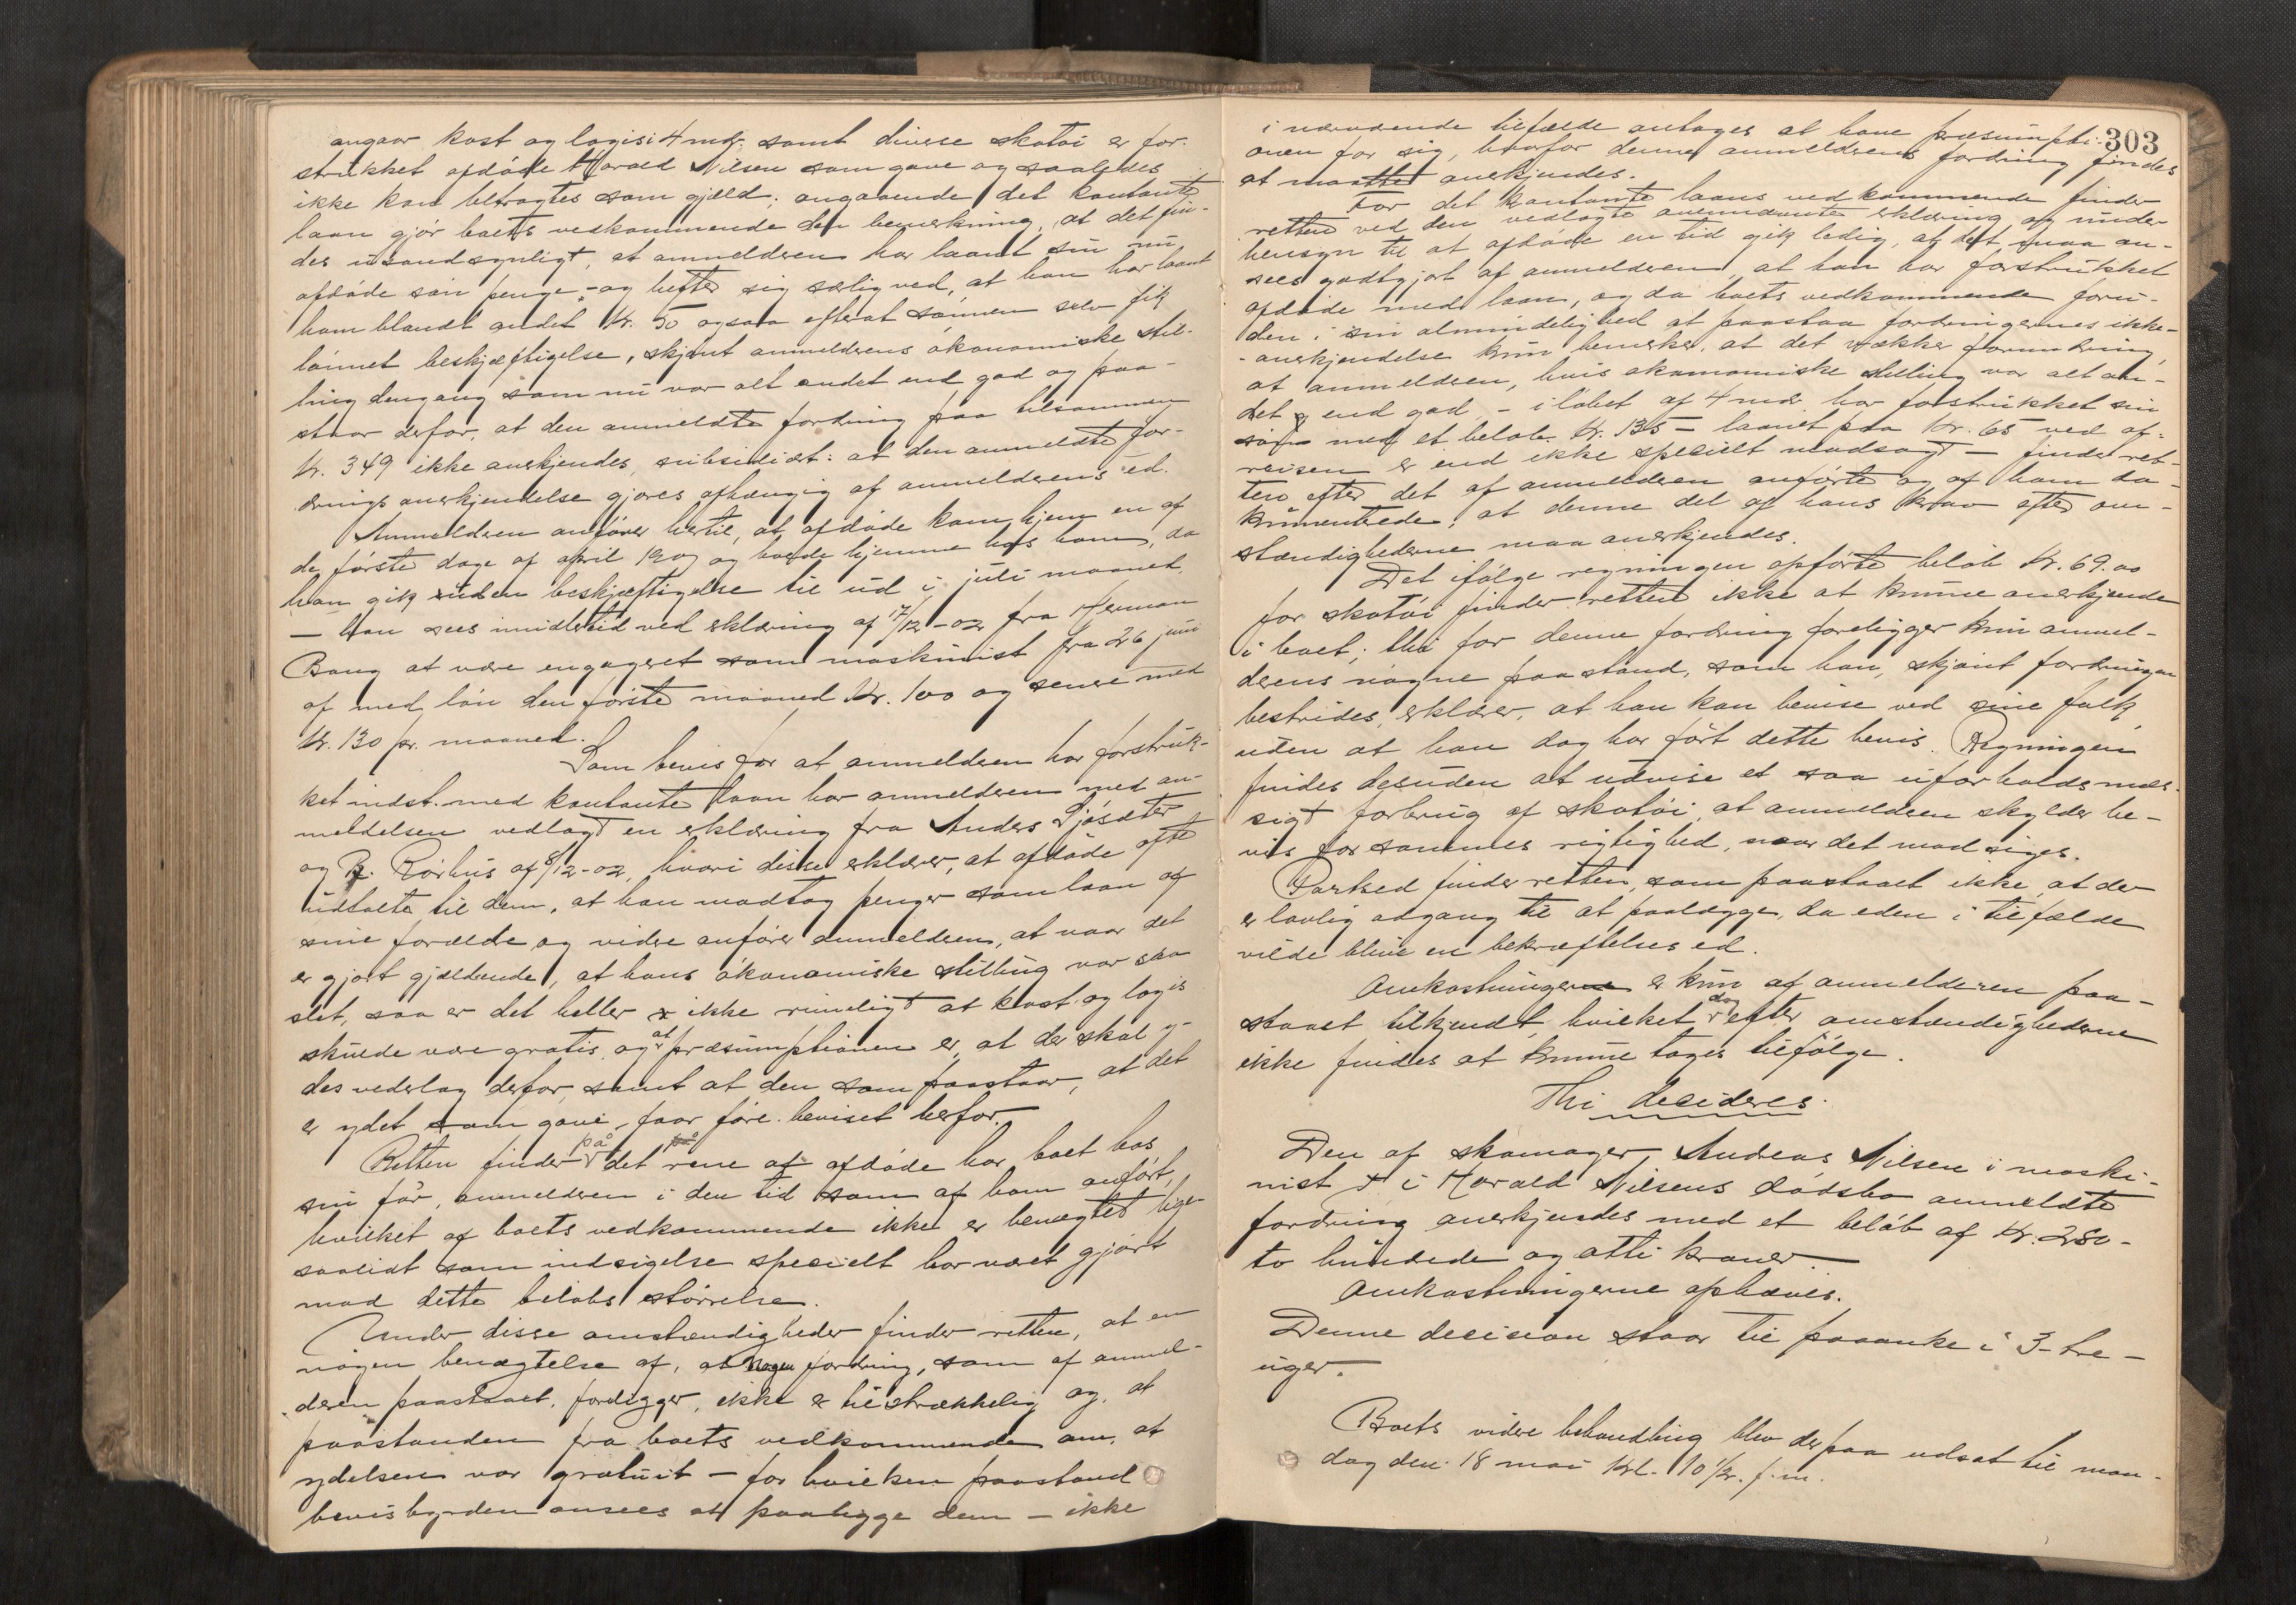 angaar kost og logis i 4 mdr. samt diverse skotøi er for-
strukket afdøde Harald Nilsen som gave og saaledes
ikke kan betragtes som gjæld; angaaende det kontante
laan gjør boets vedkommende den bemerkning, at det fin-
des usandsynligt, at anmelderen har laant sin nu
afdøde søn penge, - og hefter sig særlig ved, at han har laant
ham blandt andet kr. 50 ogsaa efterat sønnen selv fik
lønnet beskjæftigelse, skjønt anmelderens økonomiske stil-
ling dengang som nu var alt andet end god og paa-
staar derfor, at den anmeldte fordring paa tilsammen
kr. 349 ikke anerkjendes, subsidiært: at den anmeldte for-
drings anerkjendelse gjøres afhængig af anmelderens ed.
Anmelderen anfører hertil, at afdøde kom hjem en af
de første dage af april 1902 og boede hjemme hos ham, da
han gik uden beskjæftigelse til ud i juli maaned,
– han sees imidlertid ved erklæring af 17/12-02 fra Herman
Bang at være engageret som maskinist fra 26 juni
af med løn den første maaned kr. 100 og senere med
kr. 130 pr. maaned.
Som bevis for at anmelderen har forstruk-
ket indst. med kontante laan har anmelderen med an-
meldelsen vedlagt en erklæring fra Anders Sjøsæter
og B. Rørhus af 8/12-02, hvori disse erklærer, at afdøde ofte
udtalte til dem, at han modtog penger som laan af
sine forældre og videre anfører anmelderen, at naar det
er gjort gjældende, at hans økonomiske stilling var saa
slet, saa er det heller ikke rimeligt at kost og logis
skulde være gratis, og at præsumptionen er, at der skal y-
des vederlag derfor, samt at den som paastaar, at det
er ydet som gave, faar føre beviset herfor.
Retten finder på det rene at afdøde har boet hos
sin far, anmelderen i den tid som af ham anført,
hvilket af boets vedkommende ikke er benægtet lige-
saalidt som indsigelse specielt har været gjort
mod dette beløbs størrelse.
Under disse omstændigheder finder retten, at en
nøgen benægtelse af, at nogen fordring, som af anmel-
deren paastaaet, foreligger, ikke er tilstrækkelig og at
paastanden fra boets vedkommende om, at
ydelsen var gratuit – for hvilken paastand
bevisbyrden ansees at paaligge dem – ikke
303
i nærværende tilfælde antages at have præsumpti-
onen for sig, hvorfor denne anmelderens fordring findes
at maatte anerkjendes.
For det kontante laans vedkommende finder
retten ved den vedlagte ovennævnte erklæring og under
hensyn til at afdøde en tid gik ledig, at det maa an-
sees godtgjort af anmelderen, at han har forstrukket
afdøde med laan, og da boets vedkommende foru-
den i sin almindelighed at paastaa fordringernes ikke-
-anerkjendelse kun bemerker, at det vækker forundring,
at anmelderen, hvis økonomiske stilling var alt an-
det end god, - i løbet af 4 mdr. har forstrukket sin
søn med et beløb kr. 135 – laanet paa kr. 65 ved af-
reisen er end ikke specielt modsagt – finder ret-
ten efter det af anmelderen anførte og af ham do-
kumenterede, at denne del af hans krav efter om-
stændighederne maa anerkjendes.
Det ifølge regningen opførte beløb kr. 69.00
for skotøi finder retten ikke at kunne anerkjende
i boet; thi for denne fordring foreligger kun anmel-
derens nøgne paastand, som han, skjønt fordringen
bestrides, erklærer, at han kan bevise ved sine folk,
uden at han dog har ført dette bevis. Regningen
findes desuden at udvise et saa uforholdsmæs-
sigt forbrug af skotøi, at anmelderen skylder be-
vis for sammes rigtighed, naar det modsiges.
Partsed finder retten, som paastaaet ikke, at der
er lovlig adgang til at paalægge, da eden i tilfælde
vilde blive en bekræftelsesed.
Omkostninger er kun af anmelderen paa-
staaet tilkjendt, hvilket dog efter omstændighederne
ikke findes at kunne tages tilfølge.
Thi decideres:
Den af skomager Andreas Nilsen i maski-
nist i Harald Nilsens dødsbo anmeldte
fordring anerkjendes med et beløb af kr. 280 -
to hundrede og otti kroner. –
Omkostningerne ophæves.
Denne decision staar til paaanke i 3 - tre -
uger.
Boets videre behandling blev derpaa udsat til man-
dag den 18 mai kl. 10 1/2 f.m.